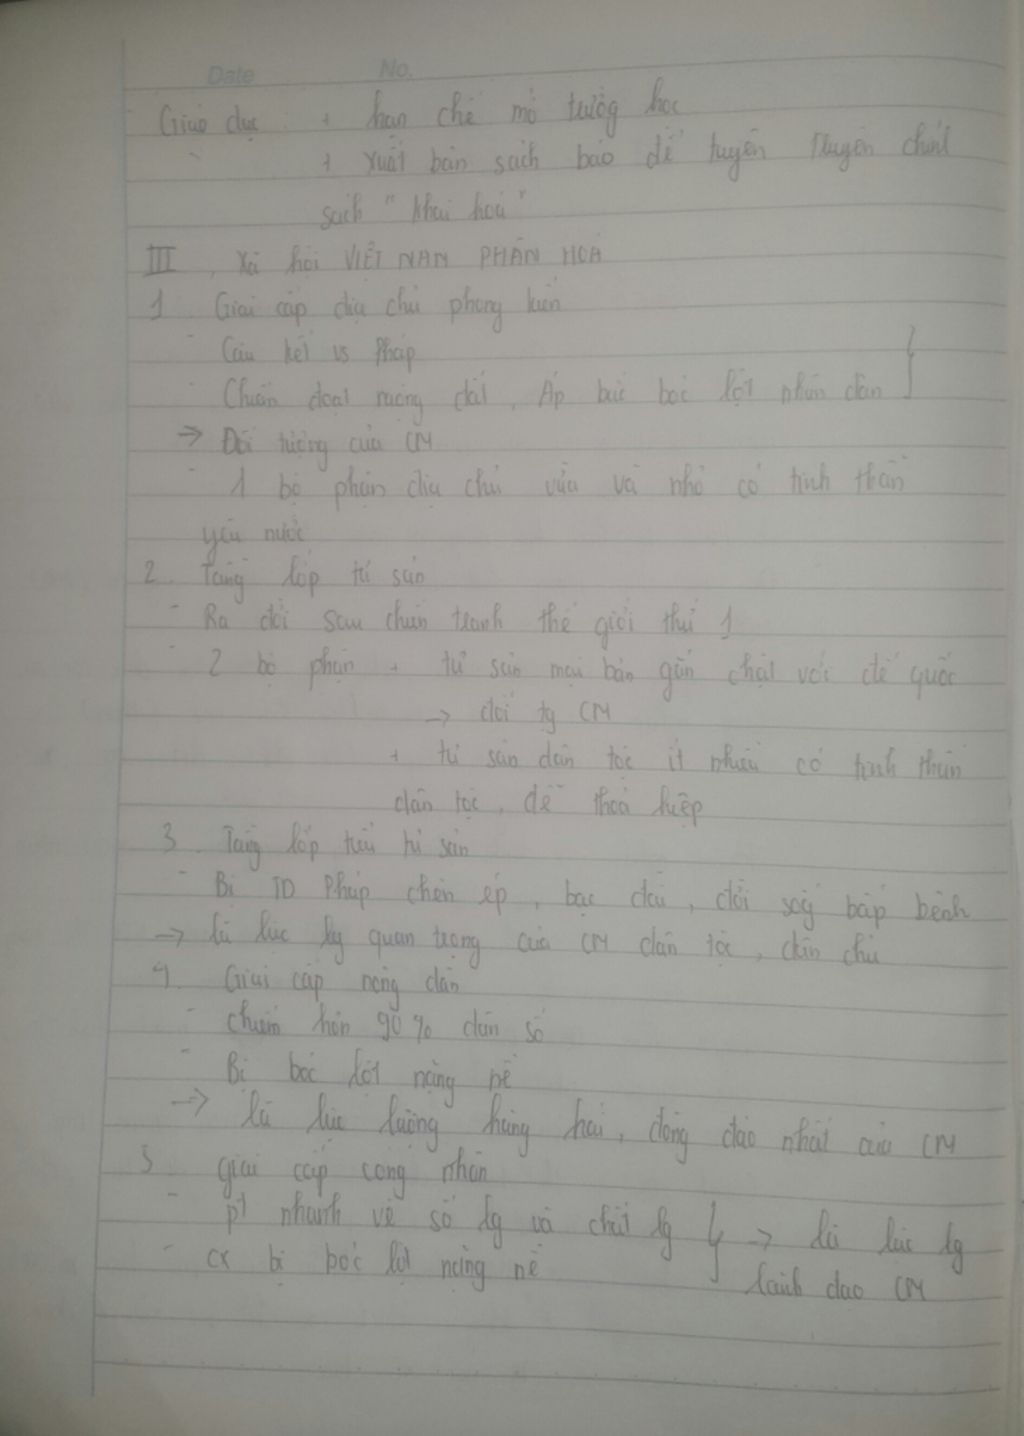 Date No.
Giáo dục : + hạn chế mở trường học
+ Xuất bản sách báo để tuyên truyền chính
sách "khai hoá"
III, Xã hội VIỆT NAM PHÂN HOÁ
1 Giai cấp địa chủ phong kiến
- Câu kết vs Pháp
- Chiếm đoạt ruộng đất, Áp bức bóc lột nhân dân }
-> Đối tượng của CM
- 1 bộ phận địa chủ vừa và nhỏ có tinh thần
yêu nước
2. Tầng lớp tư sản
- Ra đời sau chiến tranh thế giới thứ 1
- 2 bộ phận + tư sản mại bản gắn chặt với đế quốc
-> đối tg CM
+ tư sản dân tộc ít nhiều có tinh thần
dân tộc, dễ thoả hiệp
3. Tầng lớp tiểu tư sản
- Bị TD Pháp chèn ép, bạc đãi, đời sống bấp bênh
-> là lực lg quan trọng của CM dân tộc, dân chủ
4. Giai cấp nông dân
- chiếm hơn 90% dân số
- Bị bóc lột nặng nề
-> là lực lượng hăng hái, đông đảo nhất của CM
5. giai cấp công nhân
- pt nhanh về số lg và chất lg } -> là lực lg
- cx bị bóc lột nặng nề lãnh đạo CM